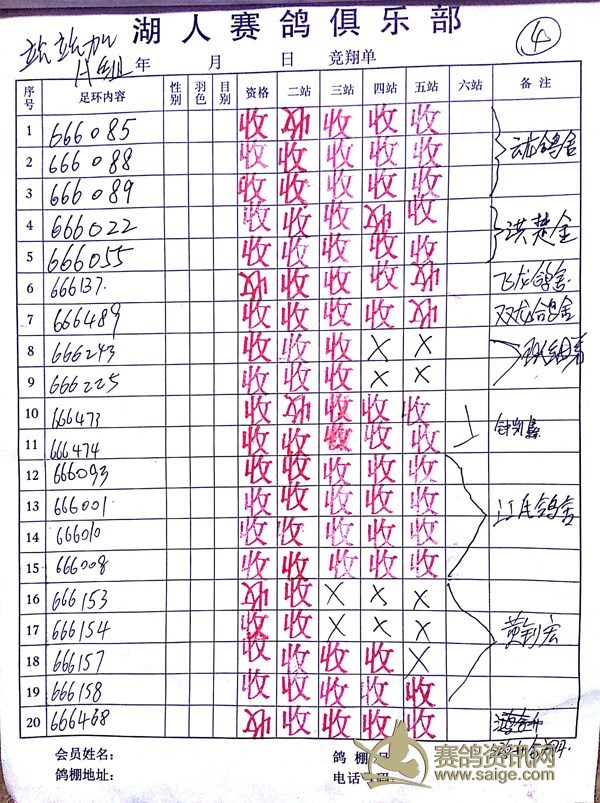 湖人赛鸽俱乐部
站站加
A组 年 月 日 竞翔单 4
序号 足环内容 性别 羽色 目别 资格 二站 三站 四站 五站 六站 备注
1 666085 收 收 收 收 收
2 666088 收 收 收 收 收 云龙鸽舍
3 666089 收 收 收 收 收
4 666022 收 收 收 收 收 洪楚金
5 666055 收 收 收 收 收
6 666137 收 收 收 收 收 飞龙鸽舍
7 666489 收 收 收 收 收 双龙鸽舍
8 666243 收 收 收 X X
9 666225 收 收 收 X X
10 666473 收 收 收 收 收
11 666474 收 收 收 收 收
12 666093 收 收 收 收 收
13 666001 收 收 收 收 收 江氏鸽舍
14 666010 收 收 收 收 收
15 666008 收 收 收 收 收
16 666153 收 收 X X X
17 666154 收 收 X X X 黄钊宏
18 666157 收 收 收 收 X
19 666158 收 收 收 收 收
20 666468 收 收 收 收 收
会员姓名: 鸽棚
鸽棚地址: 电话
赛鸽资讯网
www.saige.com